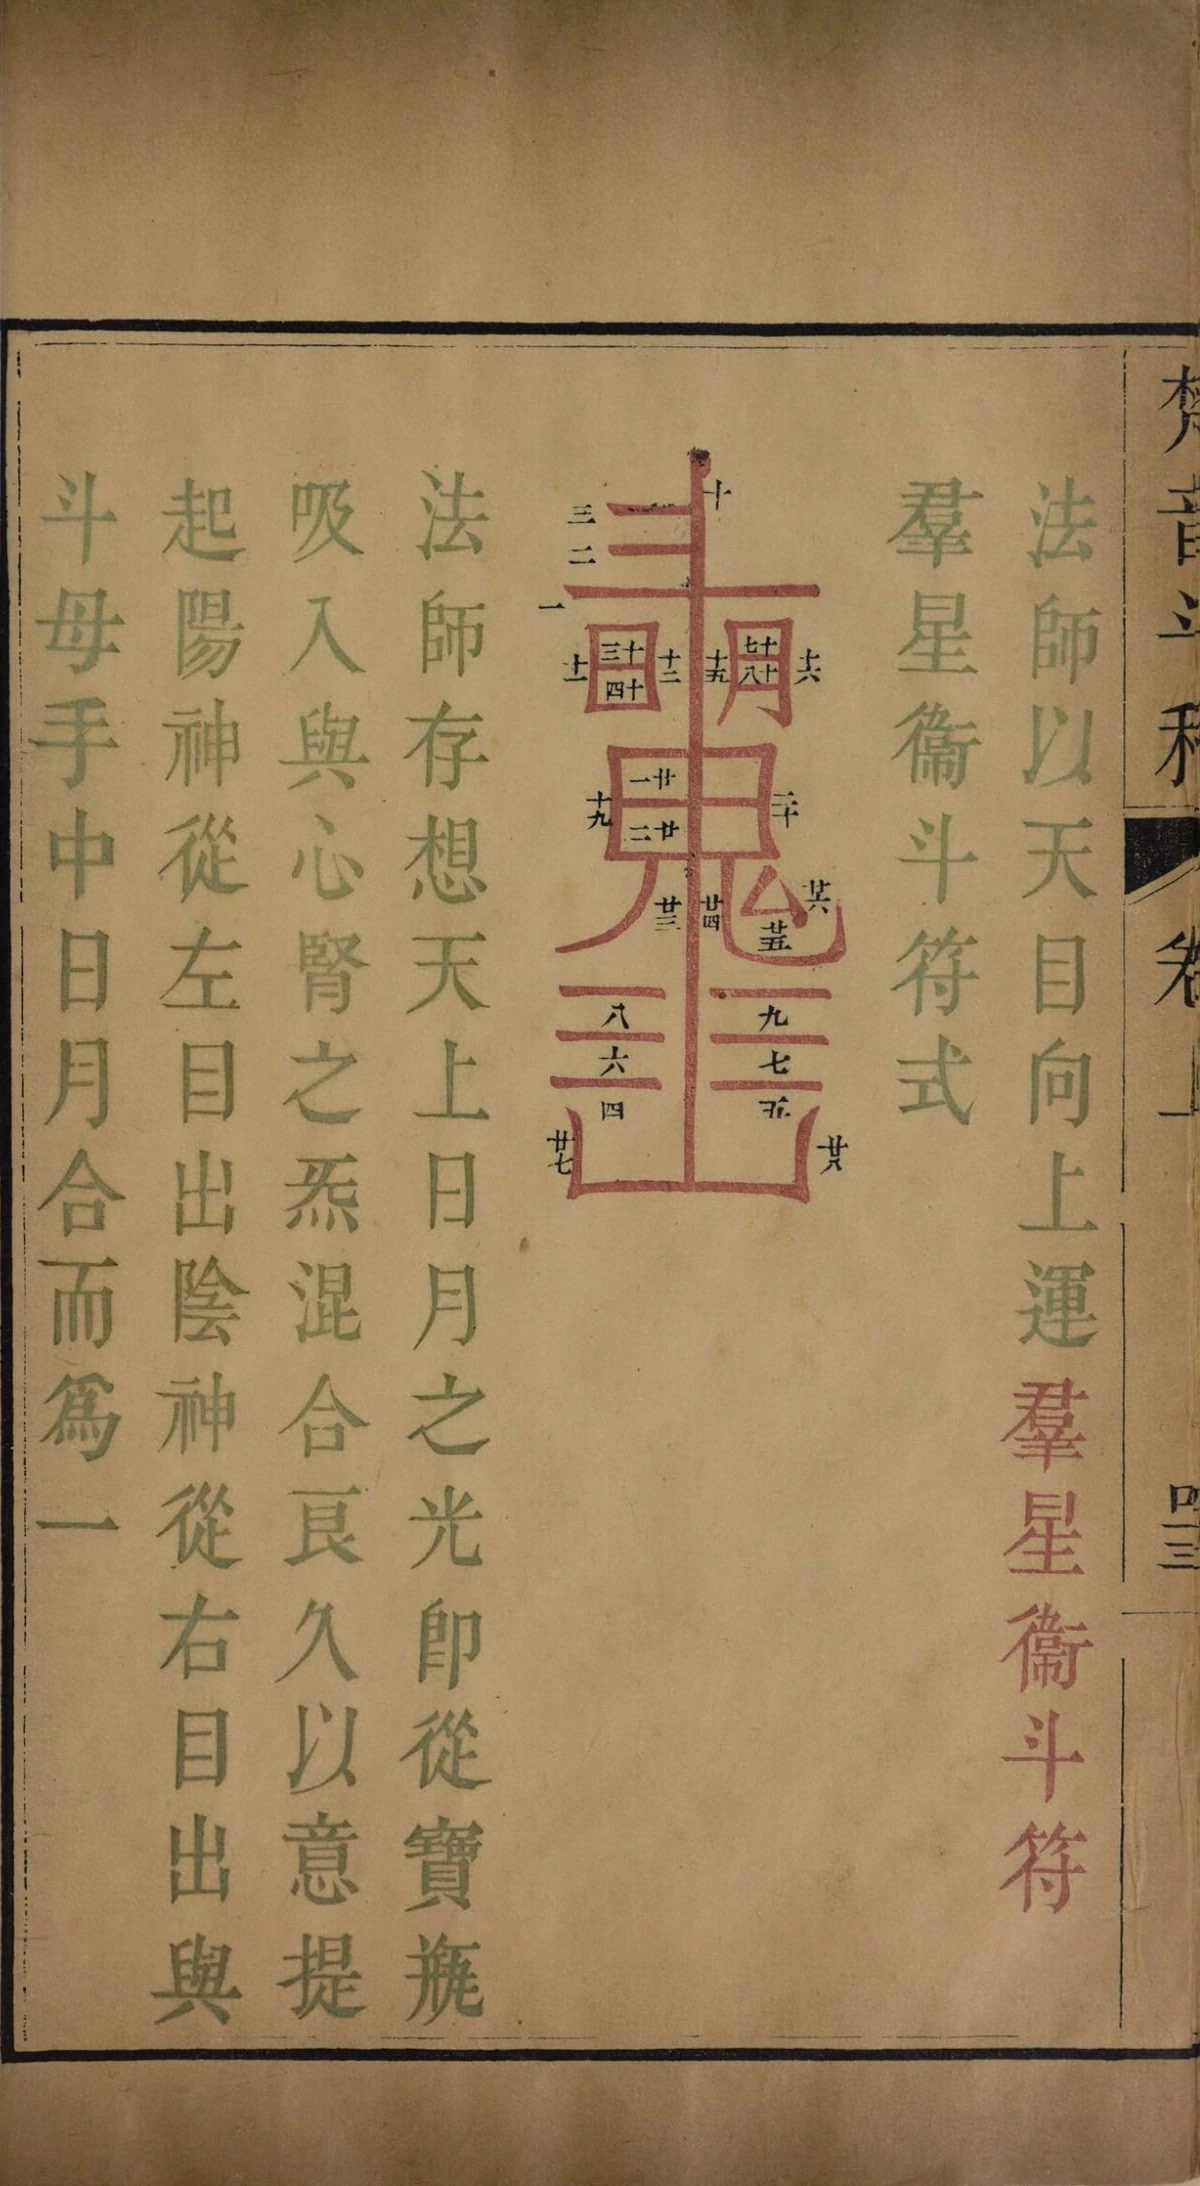 梵音斗科 卷上 四三
法師以天目向上運羣星衞斗符
羣星衞斗符式
十
三
二
一
十一
十三
十四
十二
十五
十七
十八
十六
十九
廿一
廿二
二十
廿三
廿四
廿五
廿六
八
九
六
七
四
五
廿七
廿八
法師存想天上日月之光卽從寶瓶
吸入與心腎之炁混合良久以意提
起陽神從左目出陰神從右目出與
斗母手中日月合而爲一